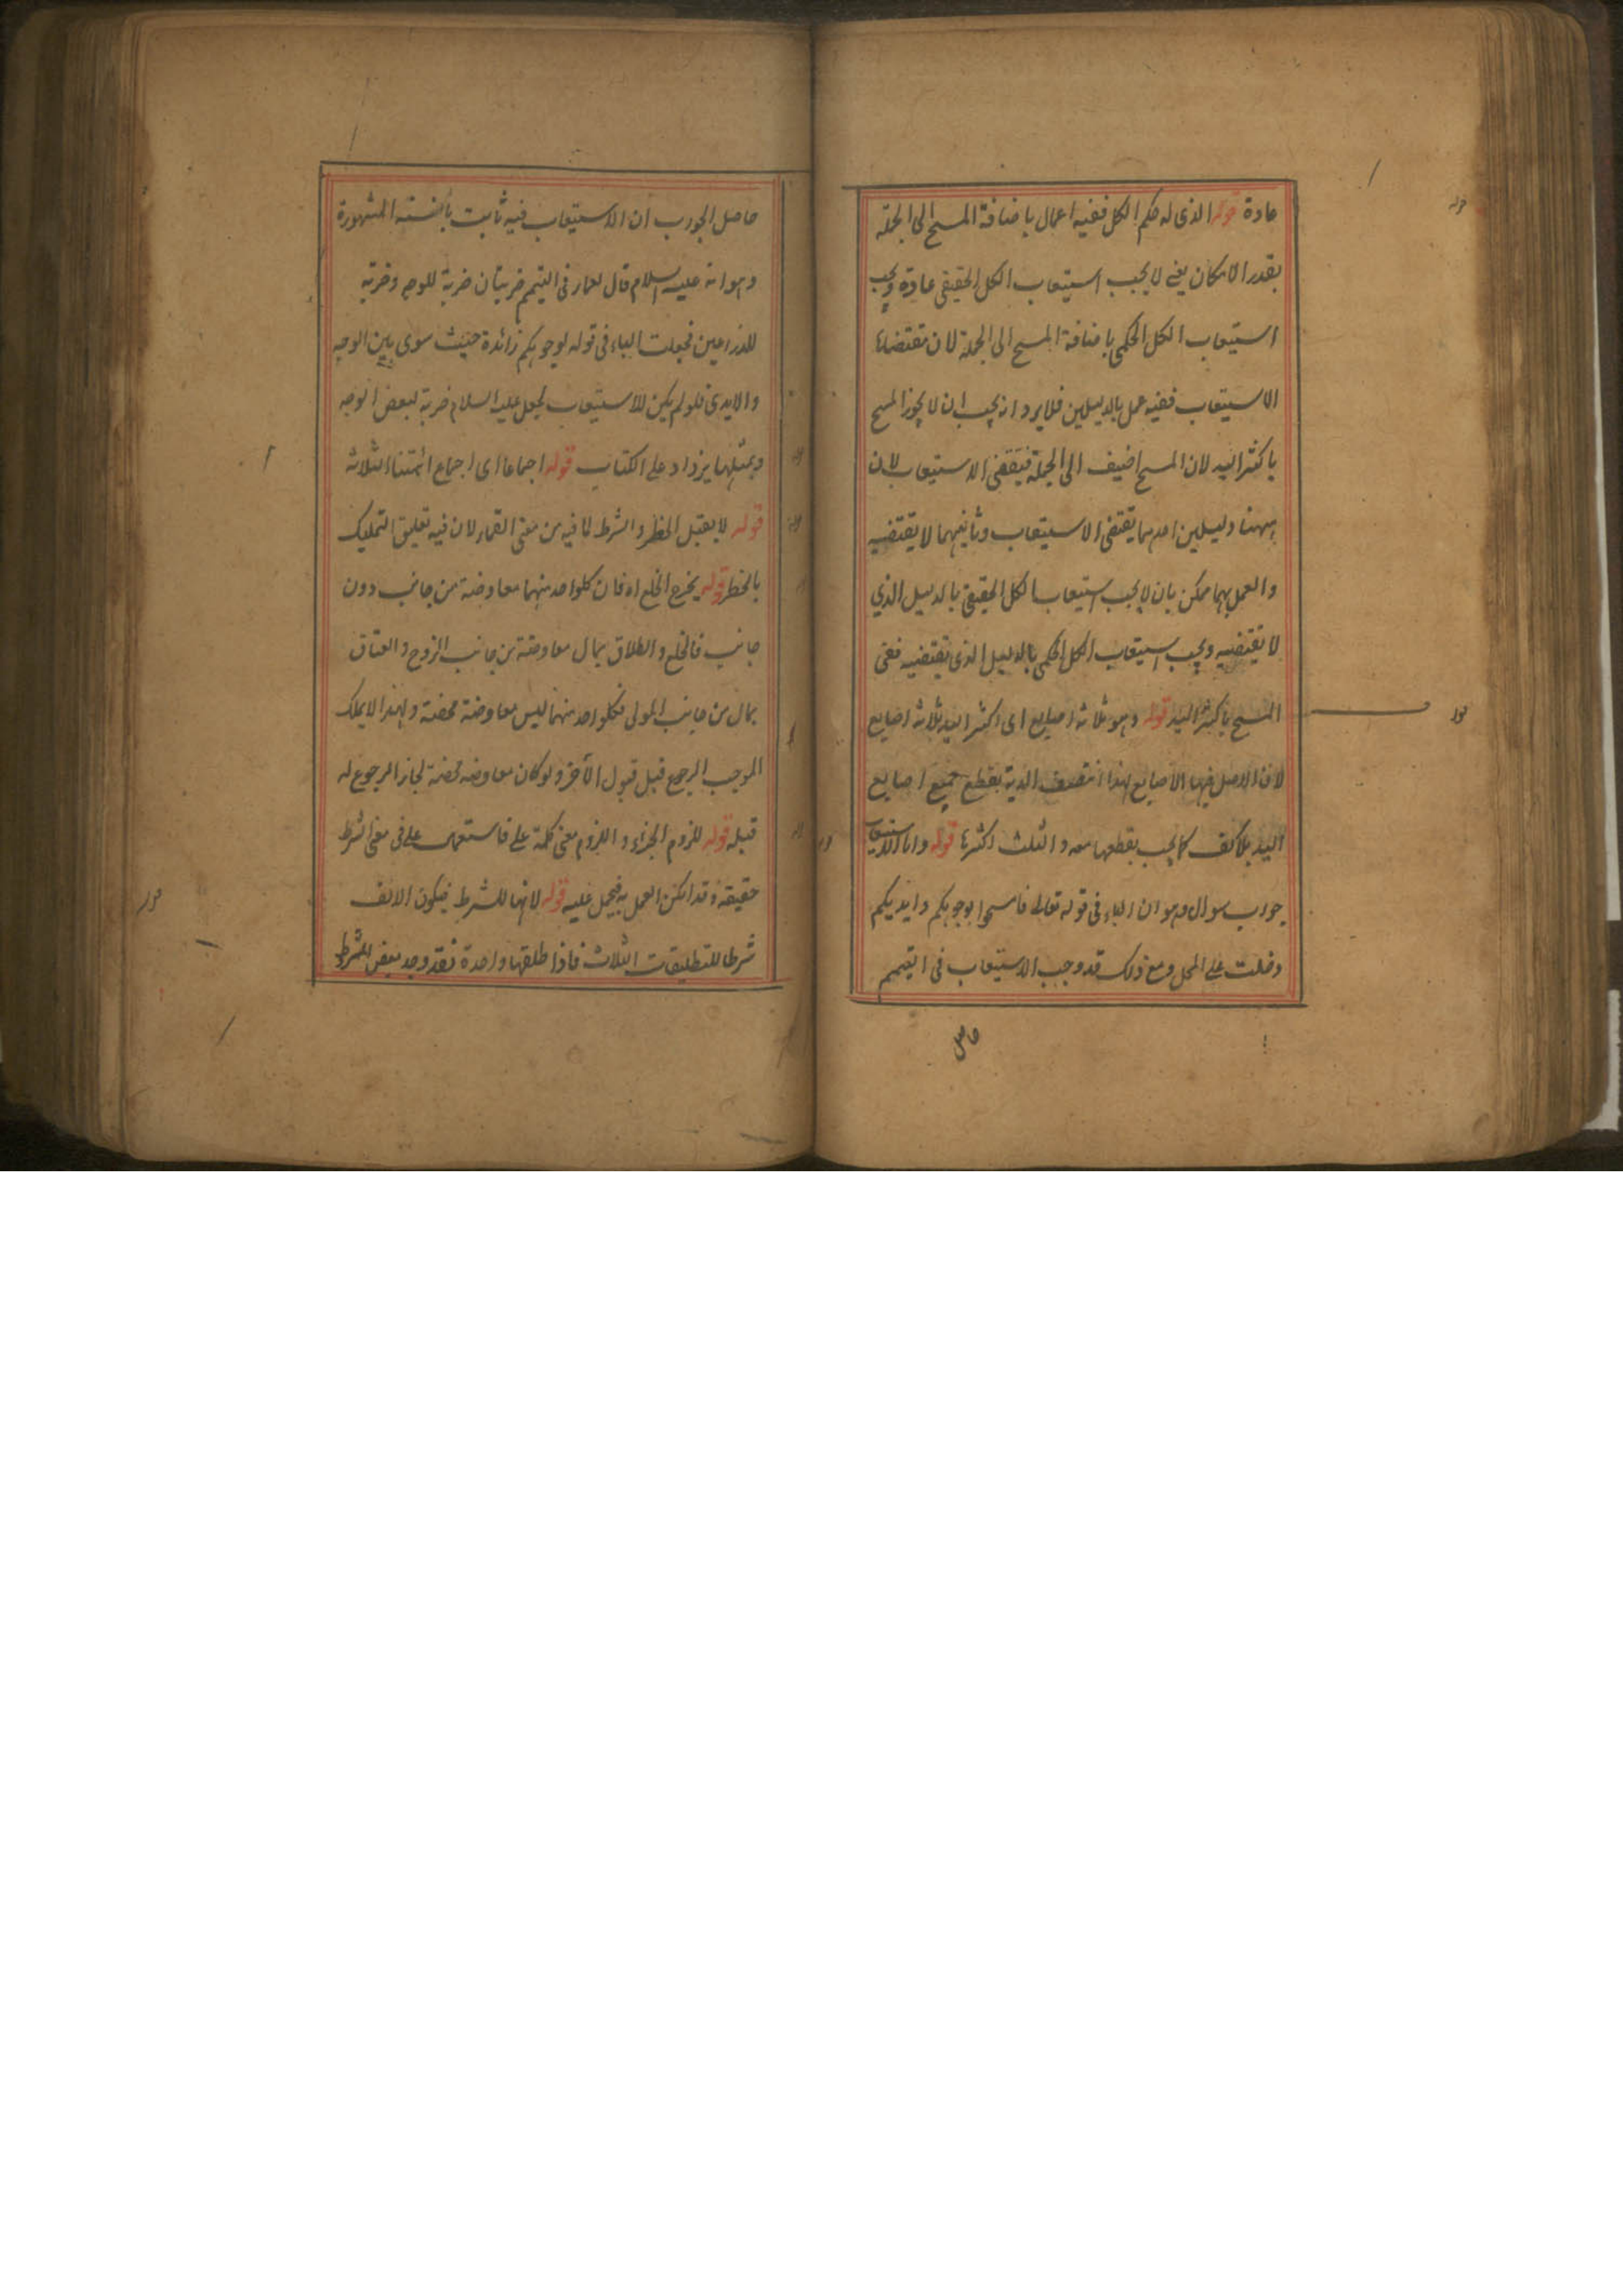 عادة قوله الذى له حكم الكل ففيه اعمال باضافة المسح الى الجملة
بقدر الامكان يعنى لا يجب استيعاب الكل الحقيقى عادة ويجب
استيعاب الكل الحكمى باضافة المسح الى الجملة لان مقتضاها
الاستيعاب ففيه عمل بالدليلين فلا يرد انه يجب ان لا يجوز المسح
باكثر اليد لان المسح اضيف الى الجملة فيقتضى الاستيعاب لان
ههنا دليلين احدهما يقتضى الاستيعاب وثانيهما لا يقتضيه
والعمل بهما ممكن بان لا يجب استيعاب الكل الحقيقى بالدليل الذي
لا يقتضيه ويجب استيعاب الكل الحكمى بالدليل الذى يقتضيه ففى
المسح باكثر اليد قوله وهو ثلاثة اصابع اى اكثر اليد ثلاثة اصابع
لان الاصل فيها الاصابع لهذا انتصف الدية بقطع جميع اصابع
اليد بلا كف كما يجب بقطعها معه والثلث اكثرها قوله واما الاستيعاب
جواب سوال وهو ان الباء فى قوله تعالى فامسحوا بوجوهكم وايديكم
دخلت على المحل ومع ذلك قد وجب الاستيعاب فى التيمم
حاصل
حاصل الجواب ان الاستيعاب فيه ثابت بالسنة المشهورة
وهو انه عليه السلام قال لعمار فى التيمم ضربتان ضربة للوجه وضربة
للذراعين فجعلت الباء فى قوله لوجوهكم زائدة حيث سوى بين الوجه
والايدى فلو لم يكن للاستيعاب لجعل عليه السلام ضربة لبعض الوجه
وبمثلها يزداد على الكتاب قوله اجماعا اى اجماع ائمتنا الثلاثة
قوله لا يقبل الخطر والشرط لما فيه من معنى القمار لان فيه تعليق التمليك
بالخطر قوله يخرج الخلع اه فان كلواحد منهما معاوضة من جانب دون
جانب فالخلع والطلاق بمال معاوضة من جانب الزوج والعتاق
بمال من جانب المولى فكلواحد منهما ليس معاوضة محضة ولهذا لا يملك
الموجب الرجوع قبل قبول الآخر ولو كان معاوضة محضة لجاز الرجوع له
قبله قوله للزوم الجزاء واللزوم معنى كلمة على فاستعمل على فى معنى الشرط
حقيقة وقد امكن العمل به فيحمل عليه قوله لانها للشرط فيكون الالف
شرطا للتطليقات الثلاث فاذا طلقها واحدة فقد وجد بعض الشرط